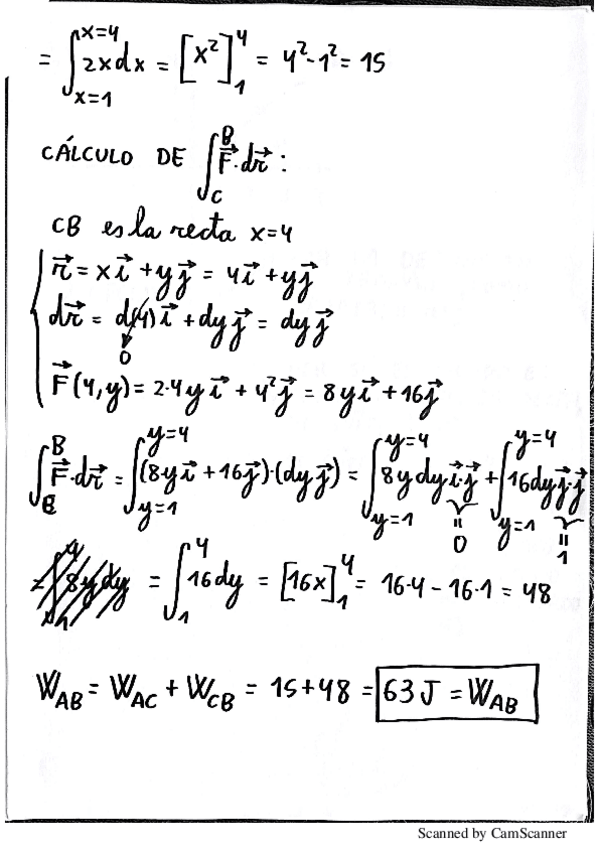 = ∫_{x=1}^{x=4} 2xdx = [x²]₁⁴ = 4²-1² = 15
CÁLCULO DE ∫_C^B F⃗·dr⃗ :
CB es la recta x=4
r⃗ = xi⃗ + yj⃗ = 4i⃗ + yj⃗
dr⃗ = d(4)i⃗ + dyj⃗ = dyj⃗
0
F⃗(4,y) = 2·4yi⃗ + 4²j⃗ = 8yi⃗ + 16j⃗
∫_C^B F⃗·dr⃗ = ∫_{y=1}^{y=4} (8yi⃗ + 16j⃗)·(dyj⃗) = ∫_{y=1}^{y=4} 8ydyi⃗·j⃗ + ∫_{y=1}^{y=4} 16dyj⃗·j⃗
= 0 = 1
= ∫₁⁴ 16dy = [16x]₁⁴ = 16·4 - 16·1 = 48
W_AB = W_AC + W_CB = 15+48 = 63 J = W_AB
Scanned by CamScanner